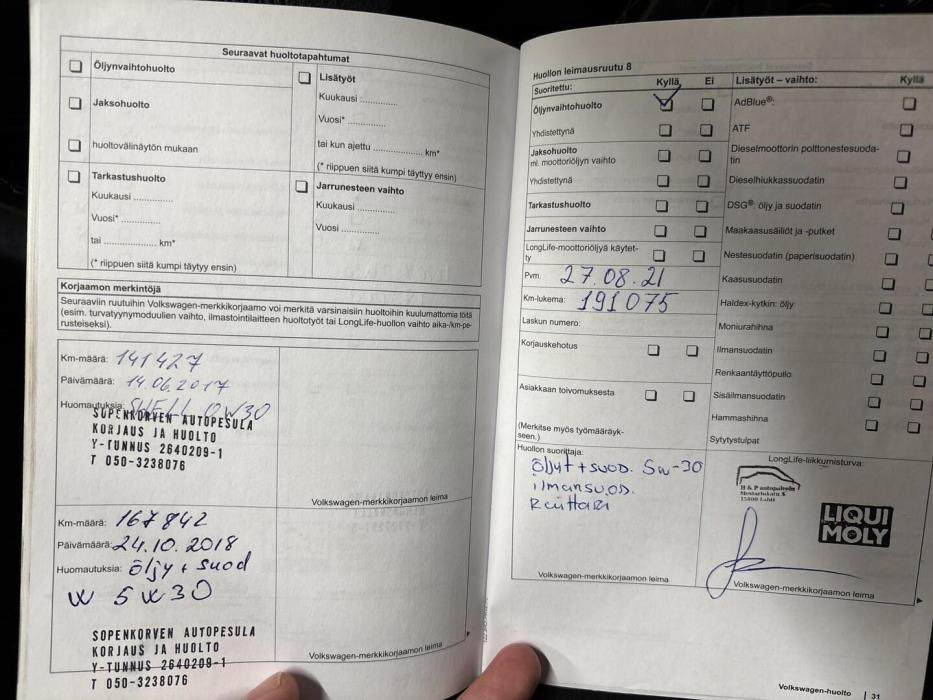 Seuraavat huoltotapahtumat
Öljynvaihtohuolto
Jaksohuolto
huoltovälinäytön mukaan
Tarkastushuolto
Kuukausi ............
Vuosi* ............
tai ................ km*
(* riippuen siitä kumpi täytyy ensin)
Lisätyöt
Kuukausi ............
Vuosi* ............
tai kun ajettu ................ km*
(* riippuen siitä kumpi täyttyy ensin)
Jarrunesteen vaihto
Kuukausi ............
Vuosi ............
Korjaamon merkintöjä
Seuraaviin ruutuihin Volkswagen-merkkikorjaamo voi merkitä varsinaisiin huoltoihin kuulumattomia töitä
(esim. turvatyynymoduulien vaihto, ilmastointilaitteen huoltotyöt tai LongLife-huollon vaihto aika-/km-pe-
rusteiseksi).
Km-määrä: 141427
Päivämäärä: 14.06.2017
Huomautuksia: SHELL 0W30
SOPENKORVEN AUTOPESULA
KORJAUS JA HUOLTO
Y-TUNNUS 2640209-1
T 050-3238076
Volkswagen-merkkikorjaamon leima
Km-määrä: 167842
Päivämäärä: 24.10.2018
Huomautuksia: öljy + suod
W 5W30
SOPENKORVEN AUTOPESULA
KORJAUS JA HUOLTO
Y-TUNNUS 2640209-1
T 050-3238076
Volkswagen-merkkikorjaamon leima
Huollon leimausruutu 8
Suoritettu: Kyllä Ei
Öljynvaihtohuolto
Yhdistettynä
Jaksohuolto
ml. moottoriöljyn vaihto
Yhdistettynä
Tarkastushuolto
Jarrunesteen vaihto
LongLife-moottoriöljyä käytet-
ty
Pvm. 27.08.21
Km-lukema: 191075
Laskun numero:
Korjauskehotus
Asiakkaan toivomuksesta
(Merkitse myös työmääräyk-
seen.)
Lisätyöt – vaihto: Kyllä
AdBlue®:
ATF
Dieselmoottorin polttonestesuoda-
tin
Dieselhiukkassuodatin
DSG®: öljy ja suodatin
Maakaasusäiliöt ja -putket
Nestesuodatin (paperisuodatin)
Kaasusuodatin
Haldex-kytkin: öljy
Moniurahihna
Ilmansuodatin
Renkaantäyttöpullo
Sisäilmansuodatin
Hammashihna
Sytytystulpat
Huollon suorittaja:
öljyt + suod. 5w-30
ilmansuod.
Raittari
Volkswagen-merkkikorjaamon leima
LongLife-liikkumisturva:
H & P autopalvelu
15800 Lahti
LIQUI
MOLY
Volkswagen-merkkikorjaamon leima
Volkswagen-huolto 31